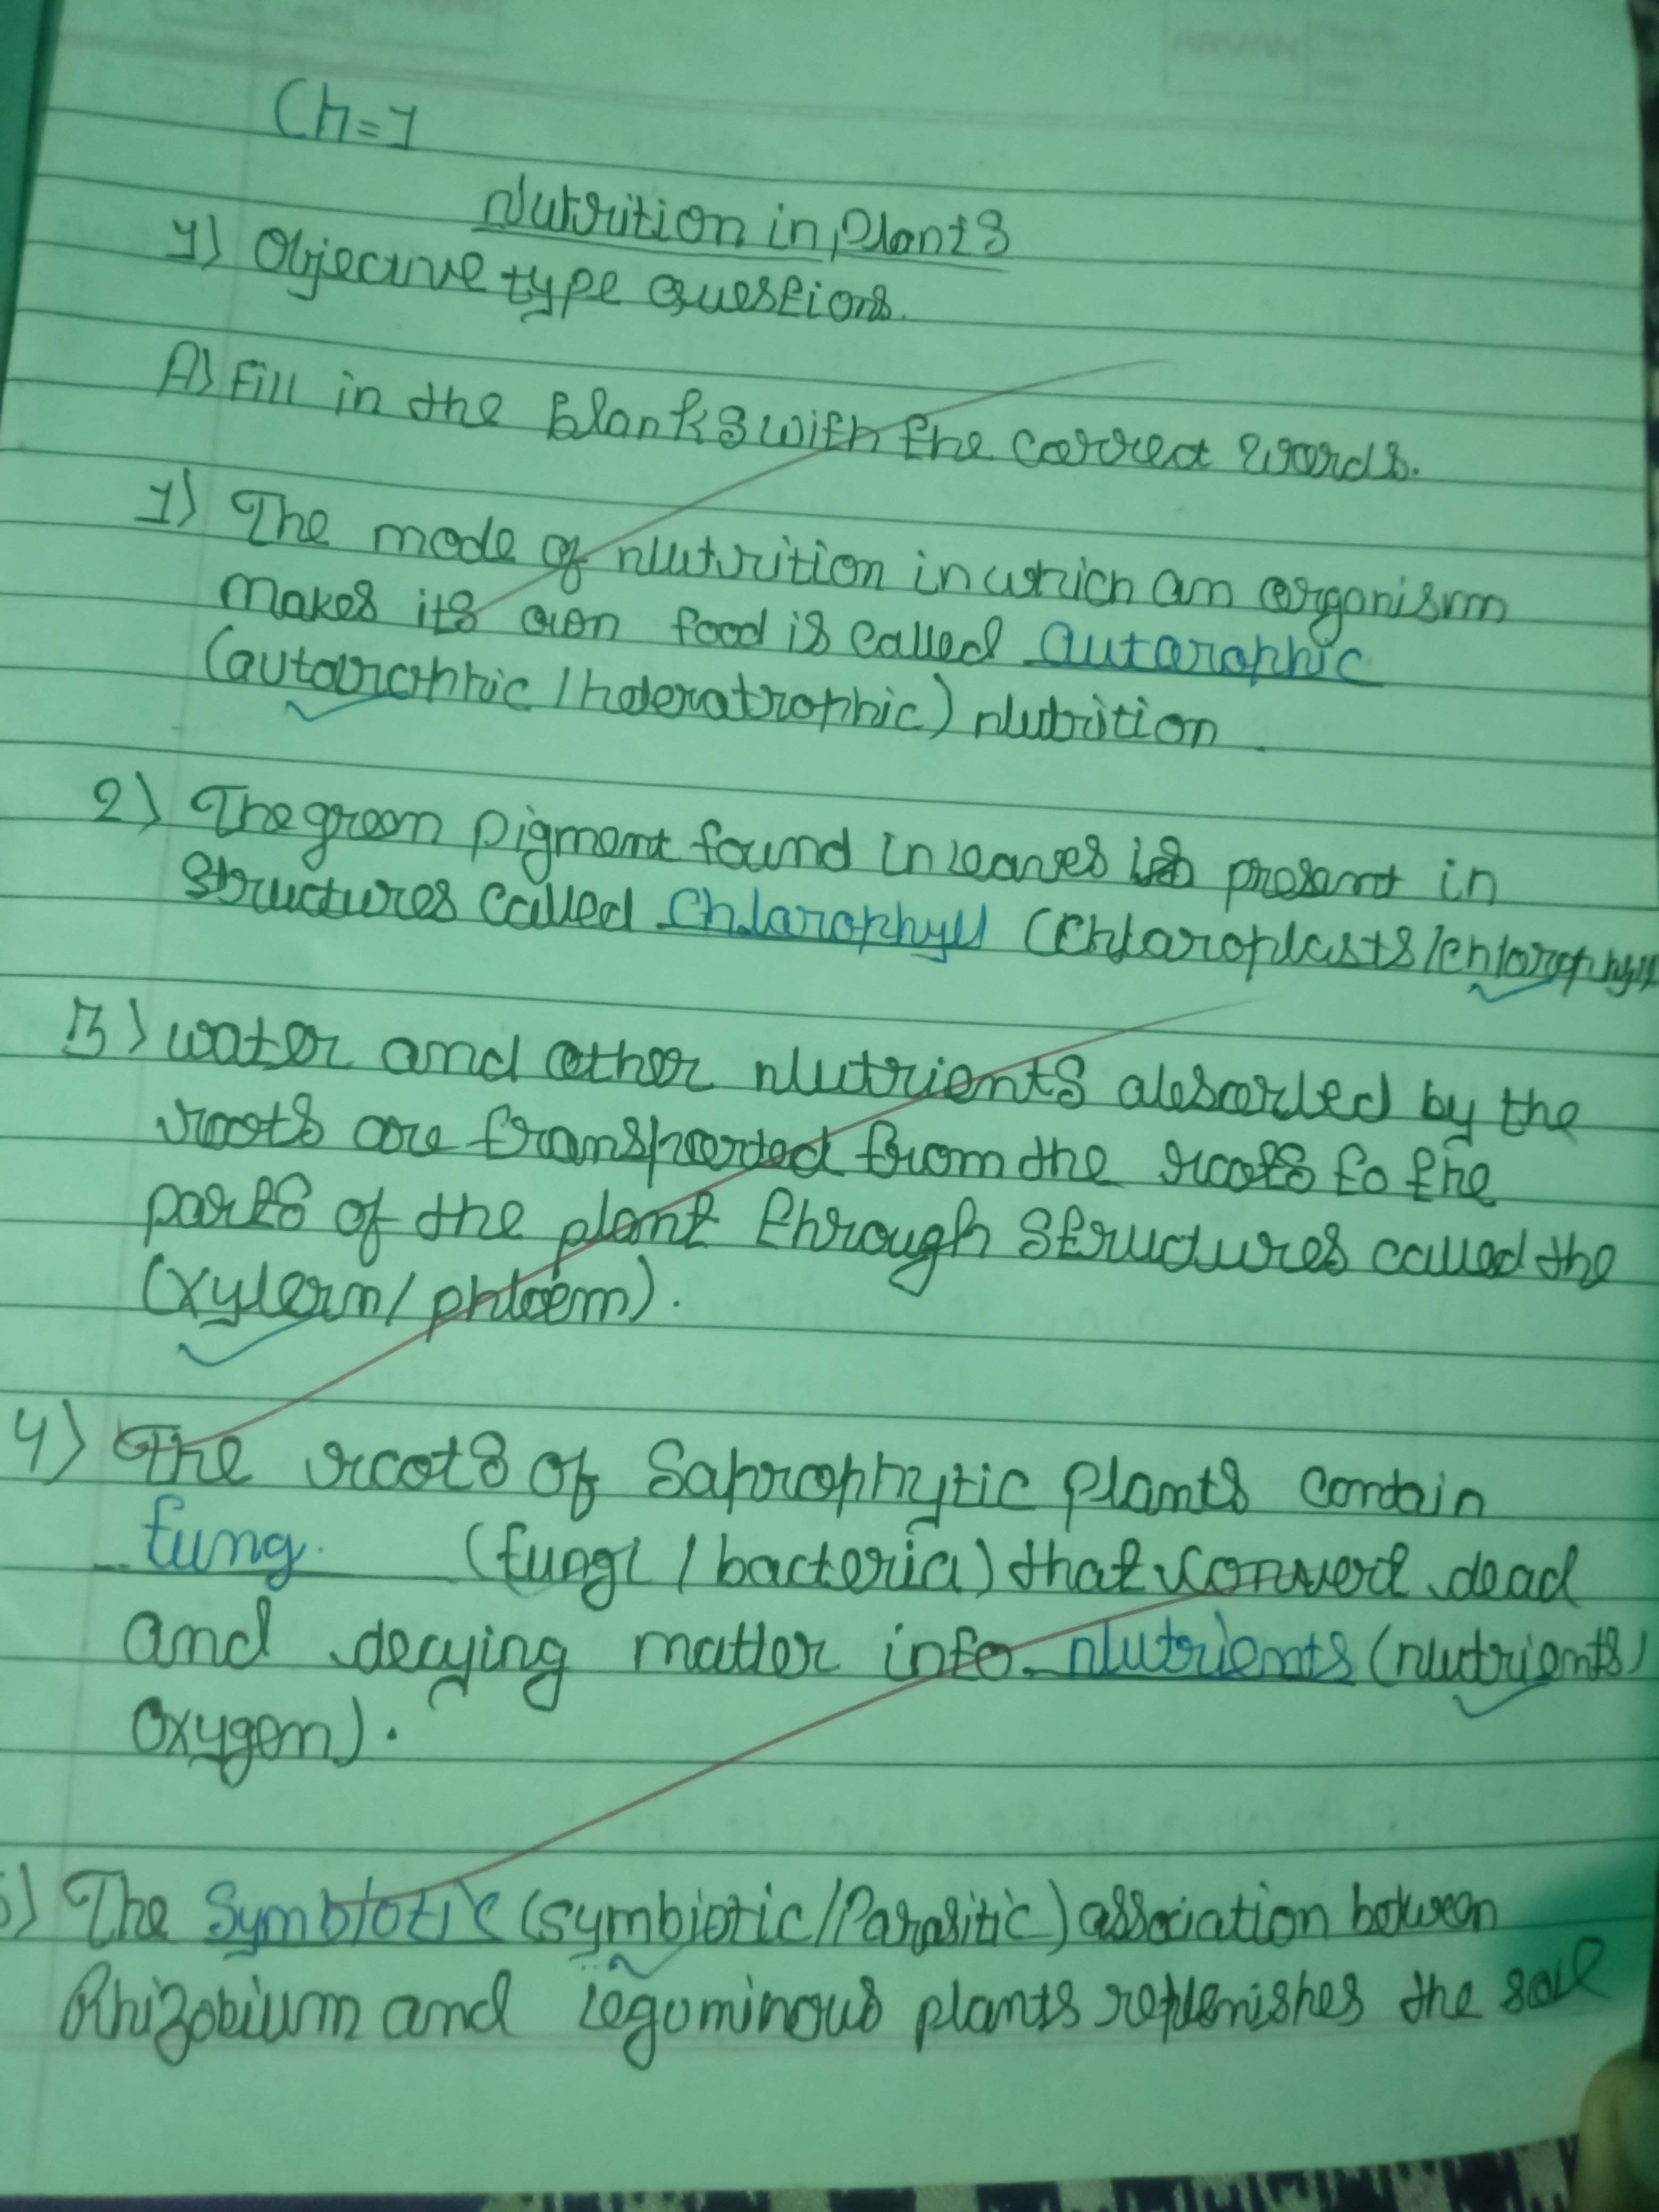 Ch=1
Nutrition in Plants
1) Objective type questions.
A) Fill in the blanks with the correct words.
1) The mode of nutrition in which an organism
makes its own food is called autorophic
(autorophic / heteratrophic) nutrition
2) The green pigment found in leaves is present in
structures called Chlarophyll (Chlaroplasts/chlorophyll
3) water and other nutrients absorbed by the
roots are transported from the roots to the
parts of the plant through structures called the
(xylem/phloem).
4) The roots of Saprophytic plants contain
fung (fungi / bacteria) that convert dead
and decaying matter into nutrients (nutrients/
oxygen).
) The Symbiotic (symbiotic/Parasitic) association between
Rhizobium and leguminous plants replenishes the soil